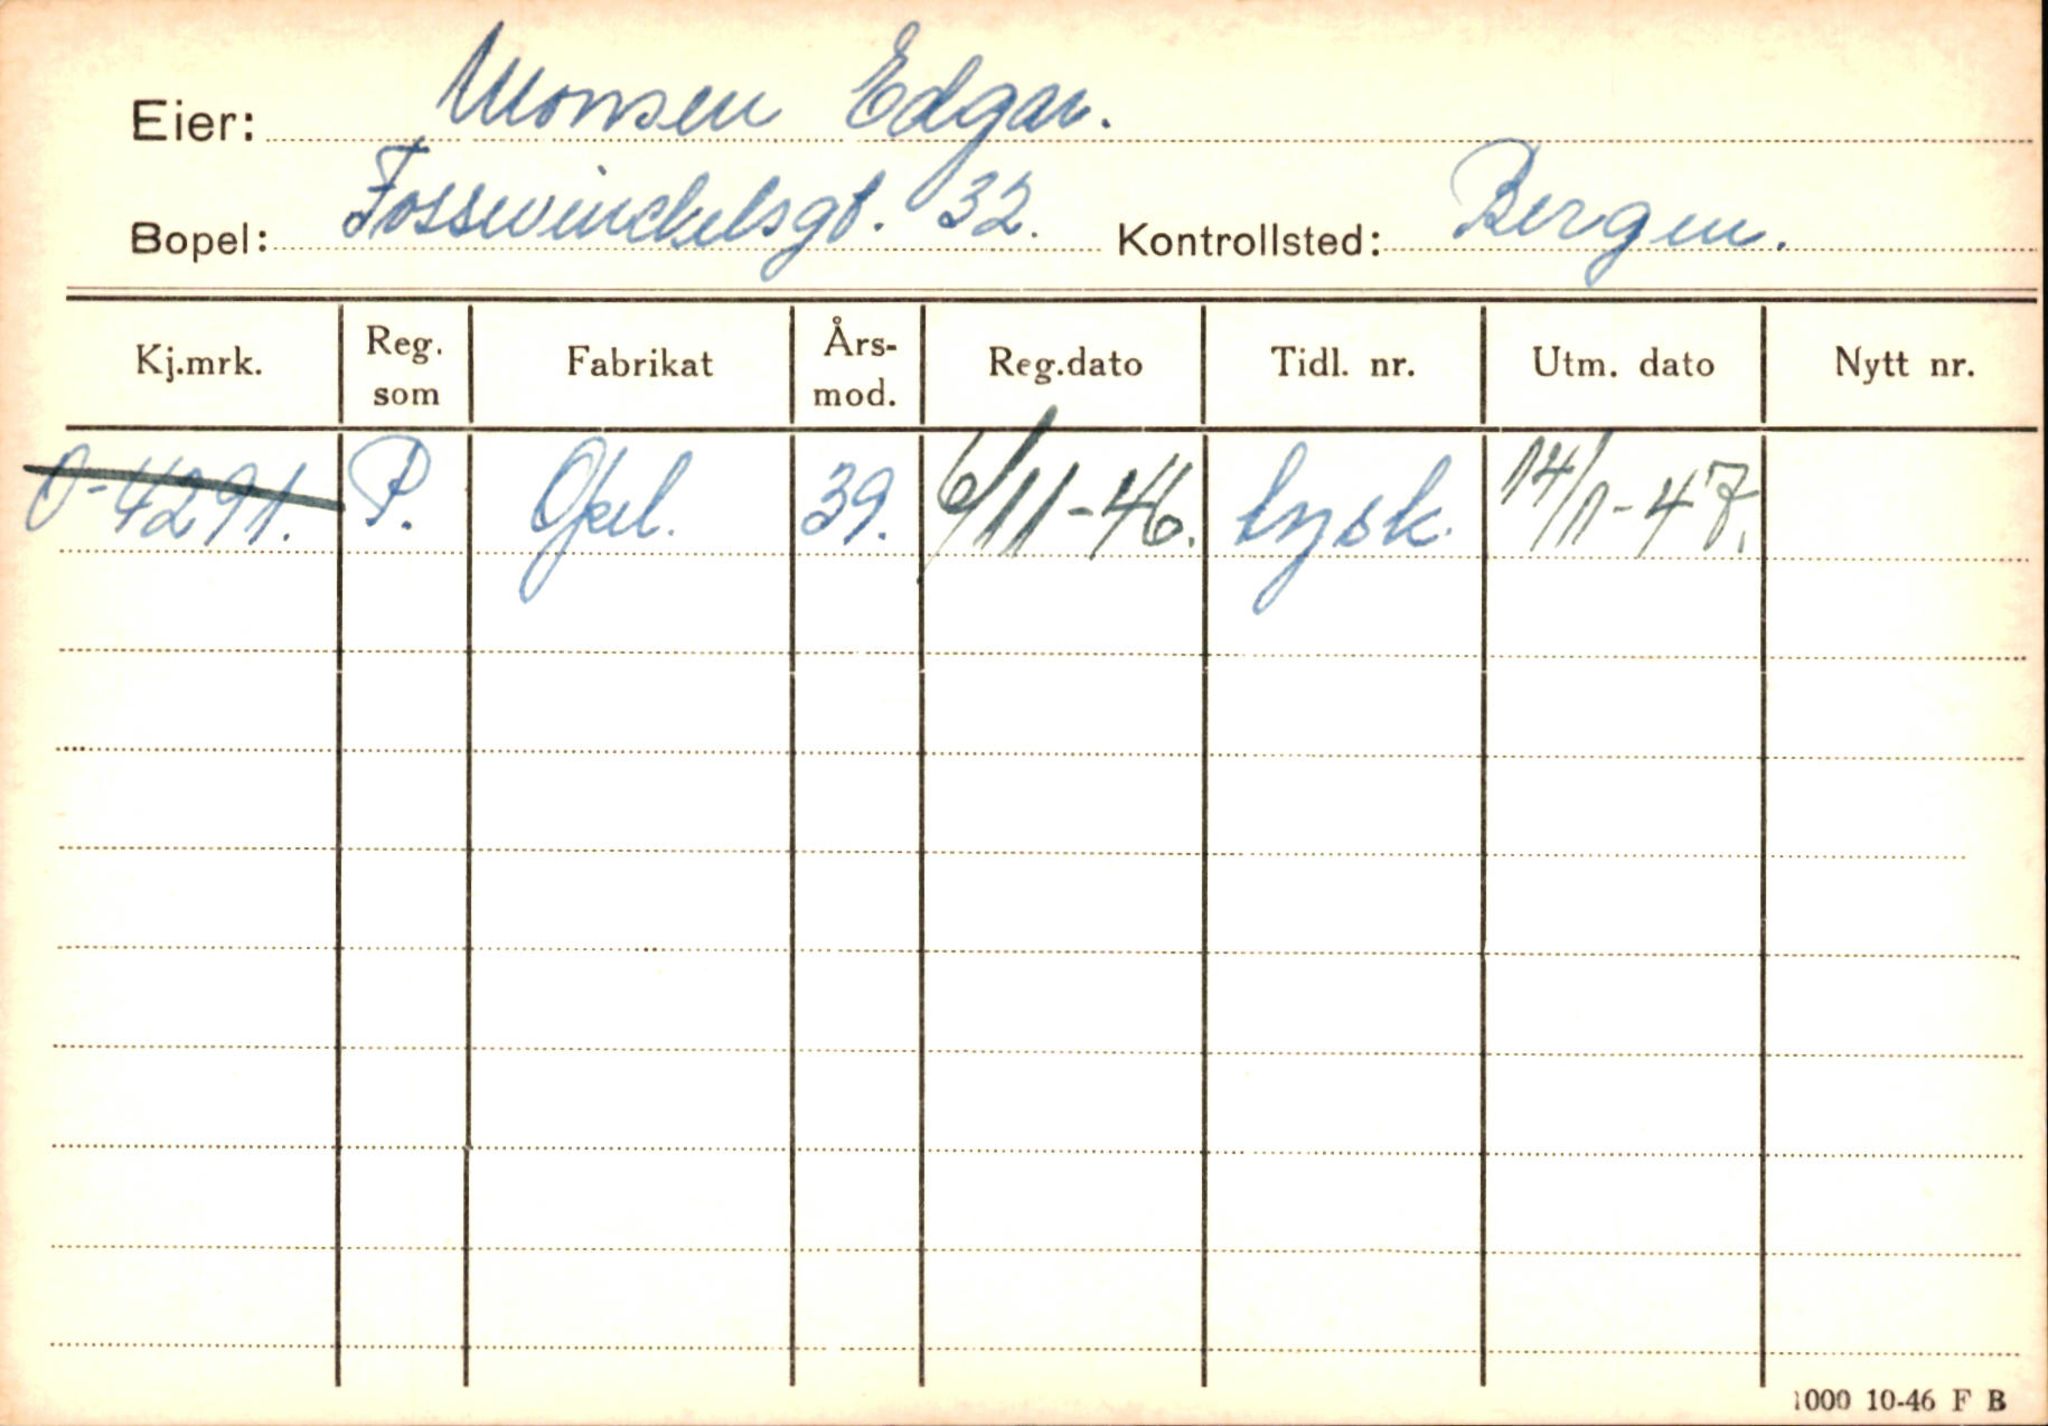 Eier: Monsen Edgar.
Bopel: Fosswinckelsgt. 32. Kontrollsted: Bergen.
Kj.mrk. Reg. som Fabrikat Års-mod. Reg.dato Tidl. nr. Utm. dato Nytt nr.
O-4291. P. Opel. 39. 6/11-46. tysk. 14/11-47.
1000 10-46 F B